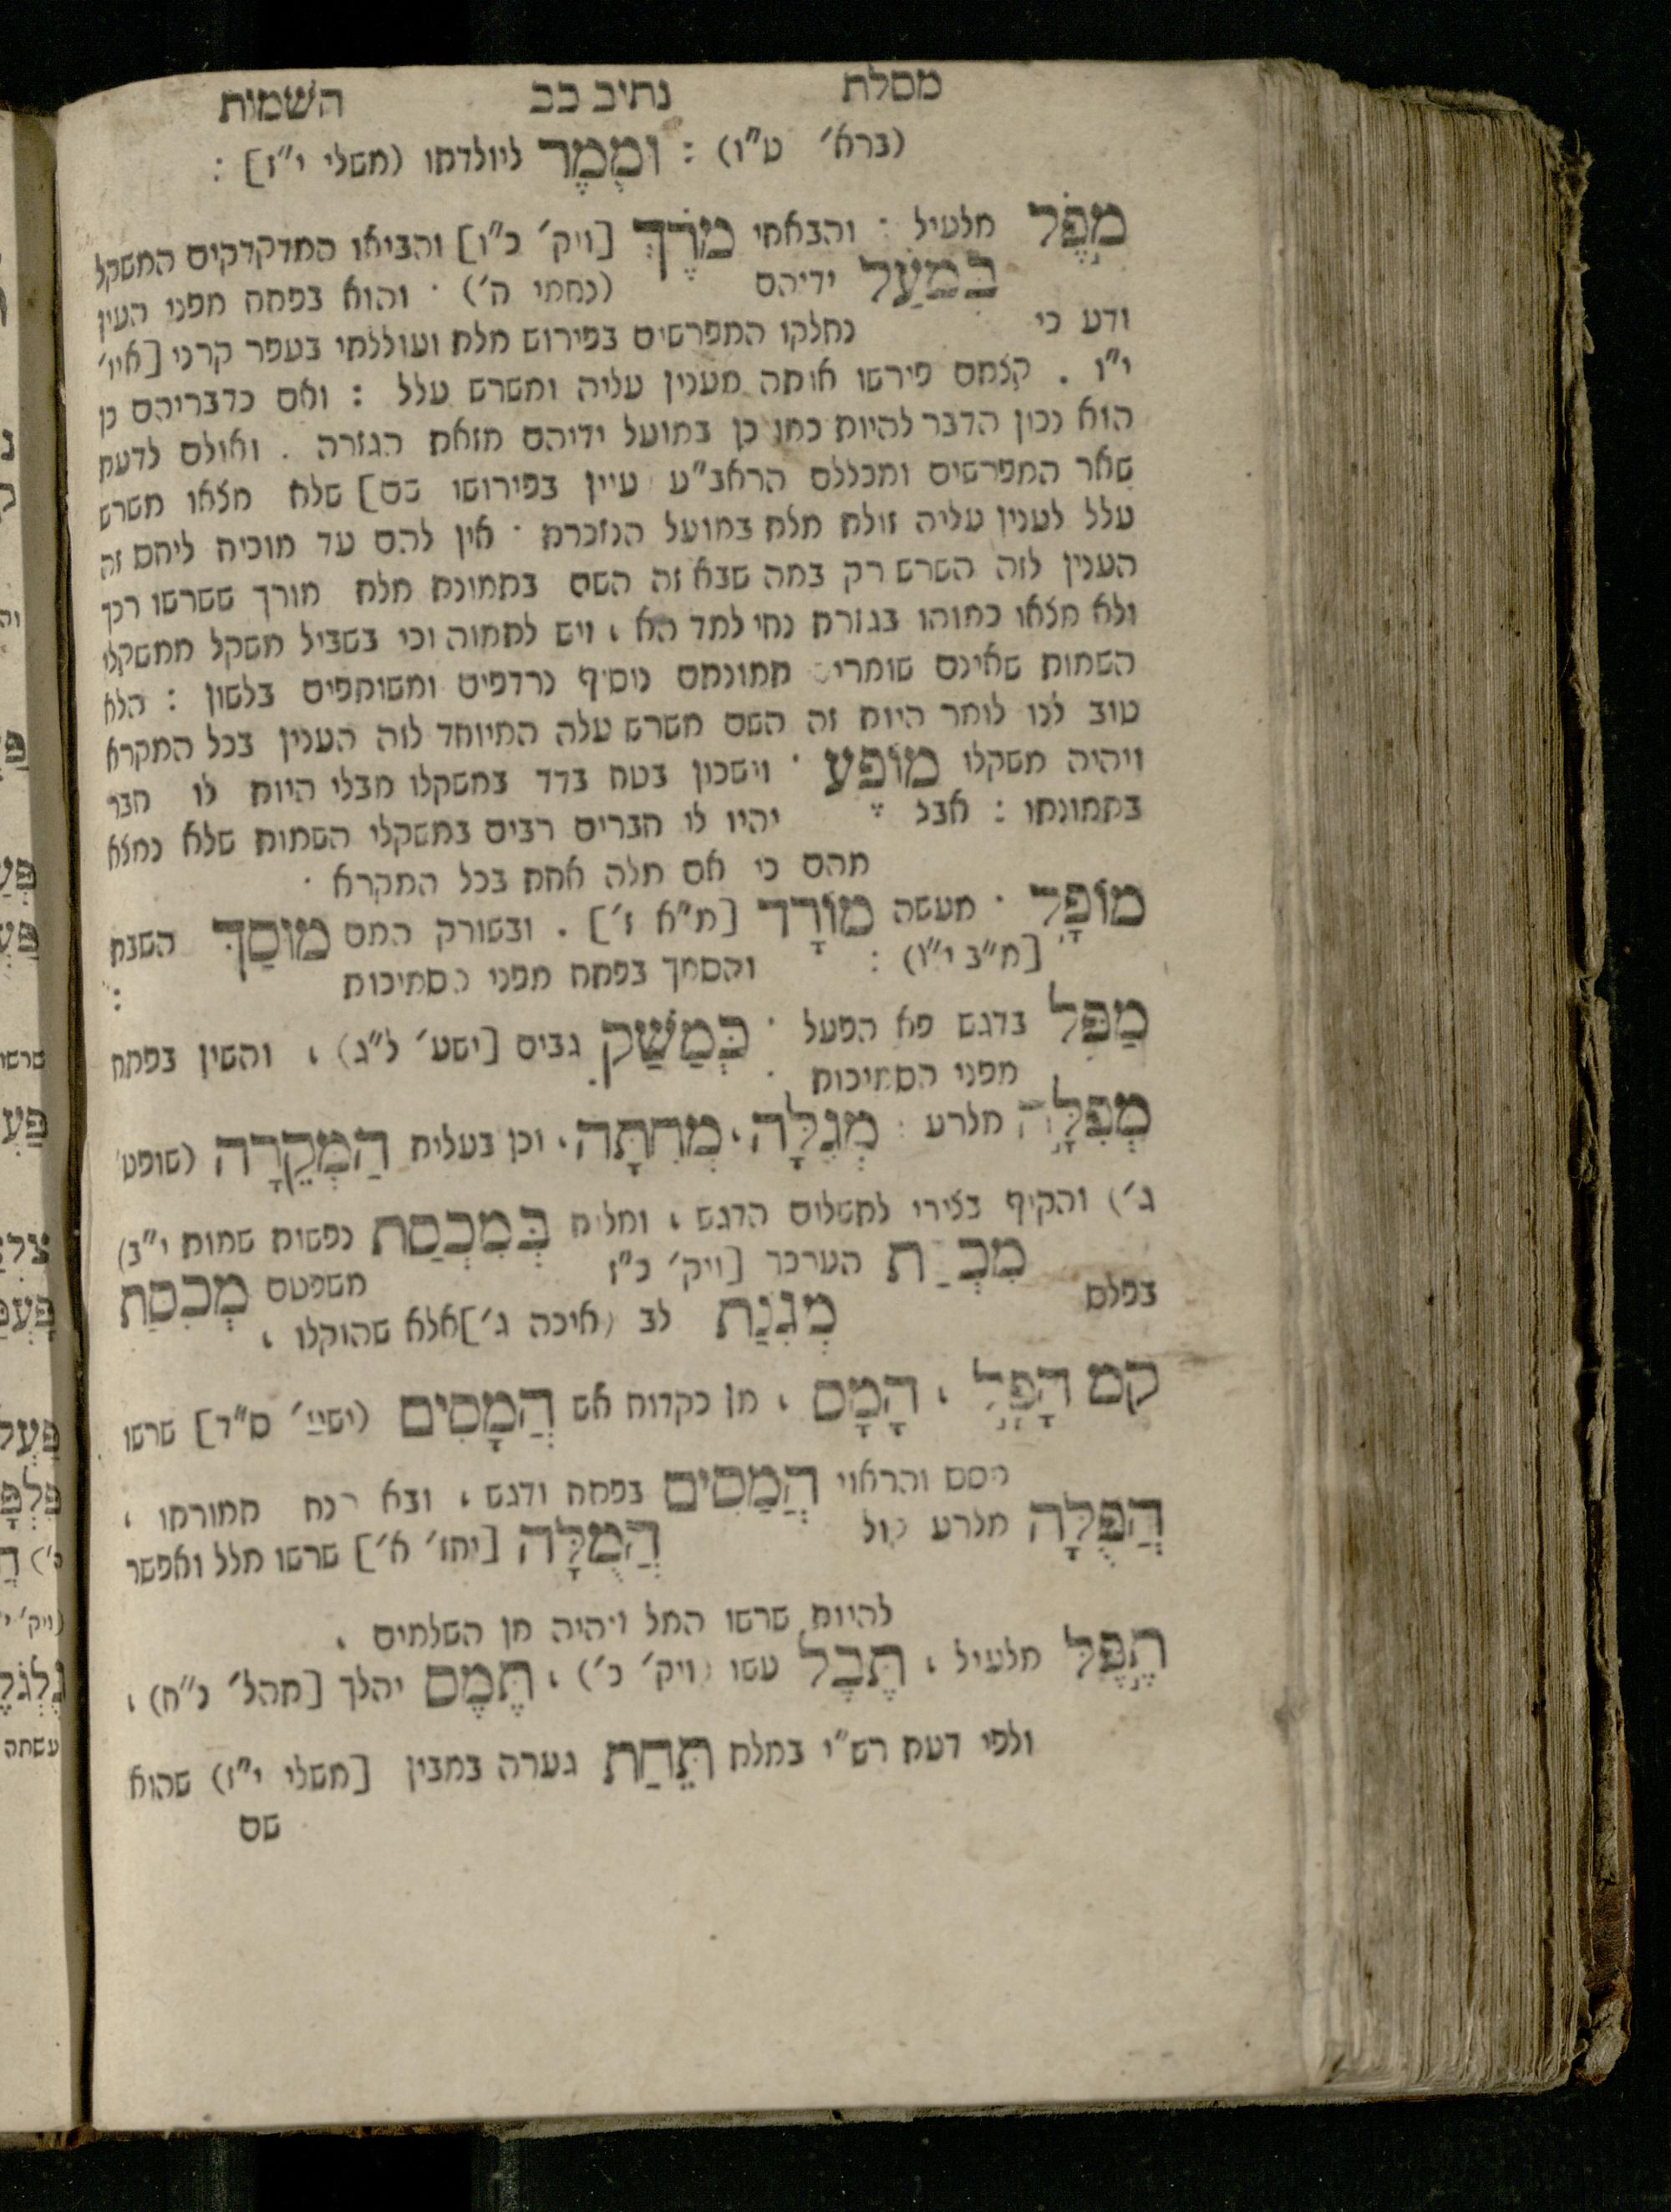 מסלת נתיב כב השמות
(ברא׳ ט״ו) : וּמֶמֶר ליולדתו (משלי י״ז] :
מֹפֶל מלעיל : והבאתי מֹרֶךְ [ויק׳ כ״ו] והביאו המדקדקים המשקל
בְּמֹעַל ידיהם (נחמי ה׳) · והוא בפתח מפני העין
ודע כי נחלקו המפרשים בפירוש מלת ועוללתי בעפר קרני [איו׳
י״ו . קצתם פירשו אותה מענין עליה ומשרש עלל : ואם כדבריהם כן
הוא נכון הדבר להיות כמו כן במועל ידיהם מזאת הגזרה . ואולם לדעת
שאר המפרשים ומכללם הראב״ע עיין בפירושו שם] שלא מצאו משרש
עלל לענין עליה זולת מלת במועל הנזכרת · אין להם עד מוכיח ליחס זה
הענין לזה השרש רק במה שבא זה השם בתמונת מלת מורך ששרשו רכך
ולא מצאו כמוהו בגזרת נחי למד הא , ויש לתמוה וכי בשביל משקל ממשקלי
השמות שאינם שומרי תמונתם נוסיף נרדפים ומשותפים בלשון : הלא
טוב לנו לומר היות זה השם משרש עלה המיוחד לזה הענין בכל המקרא
ויהיה משקלו מוֹפֶע · וישכון בטח בדד במשקלו מבלי היות לו חבר
בתמונתו : אבל יהיו לו חברים רבים במשקלי השמות שלא נמצא
מהם כי אם מלה אחת בכל המקרא ·
מוֹפָל · מעשה מוֹרָד [מ״א ז׳] . ובשורק המם מוּסַךְ השבת
[מ״ב י״ו) : והסמך בפתח מפני הסמיכות :
מַפָּל בדגש פא הפעל · כְּמַשַּׁק גבים [ישע׳ ל״ג) , והשין בפתח
מפני הסמיכות .
מְפִלָּה מלרע : מְגִלָּה , מְחִתָּה , וכן בעלית הַמְּקֵרָה (שופט׳
ג׳) והקיף בצירי לתשלום הדגש , ומלית בְּמִכְסַת נפשות שמות י״ב)
מִכְ ַת הערכך [ויק׳ כ״ז משפטם מְכִסַּת
בפלס מְגִנַּת לב (איכה ג׳] אלא שהוקלו ,
קם הָפָל , הָמָם , מן כקדוח אש הֲמָסִים (ישעי׳ ס״ד] שרשו
המם והראוי הֲמַסִּים בפתח ודגש , ובא הנח תמורתו ,
הֲפֻלָּה מלרע קול הֲמֻלָּה [יחז׳ א׳] שרשו מלל ואפשר
להיות שרשו המל ויהיה מן השלמים ,
תֶּפֶל מלעיל , תֶּבֶל עשו (ויק׳ כ׳) , תֶּמֶס יהלך [תהל׳ נ״ח) ,
ולפי דעת רש״י במלת תֵּחַת גערה במבין [משלי י״ז) שהוא
שם